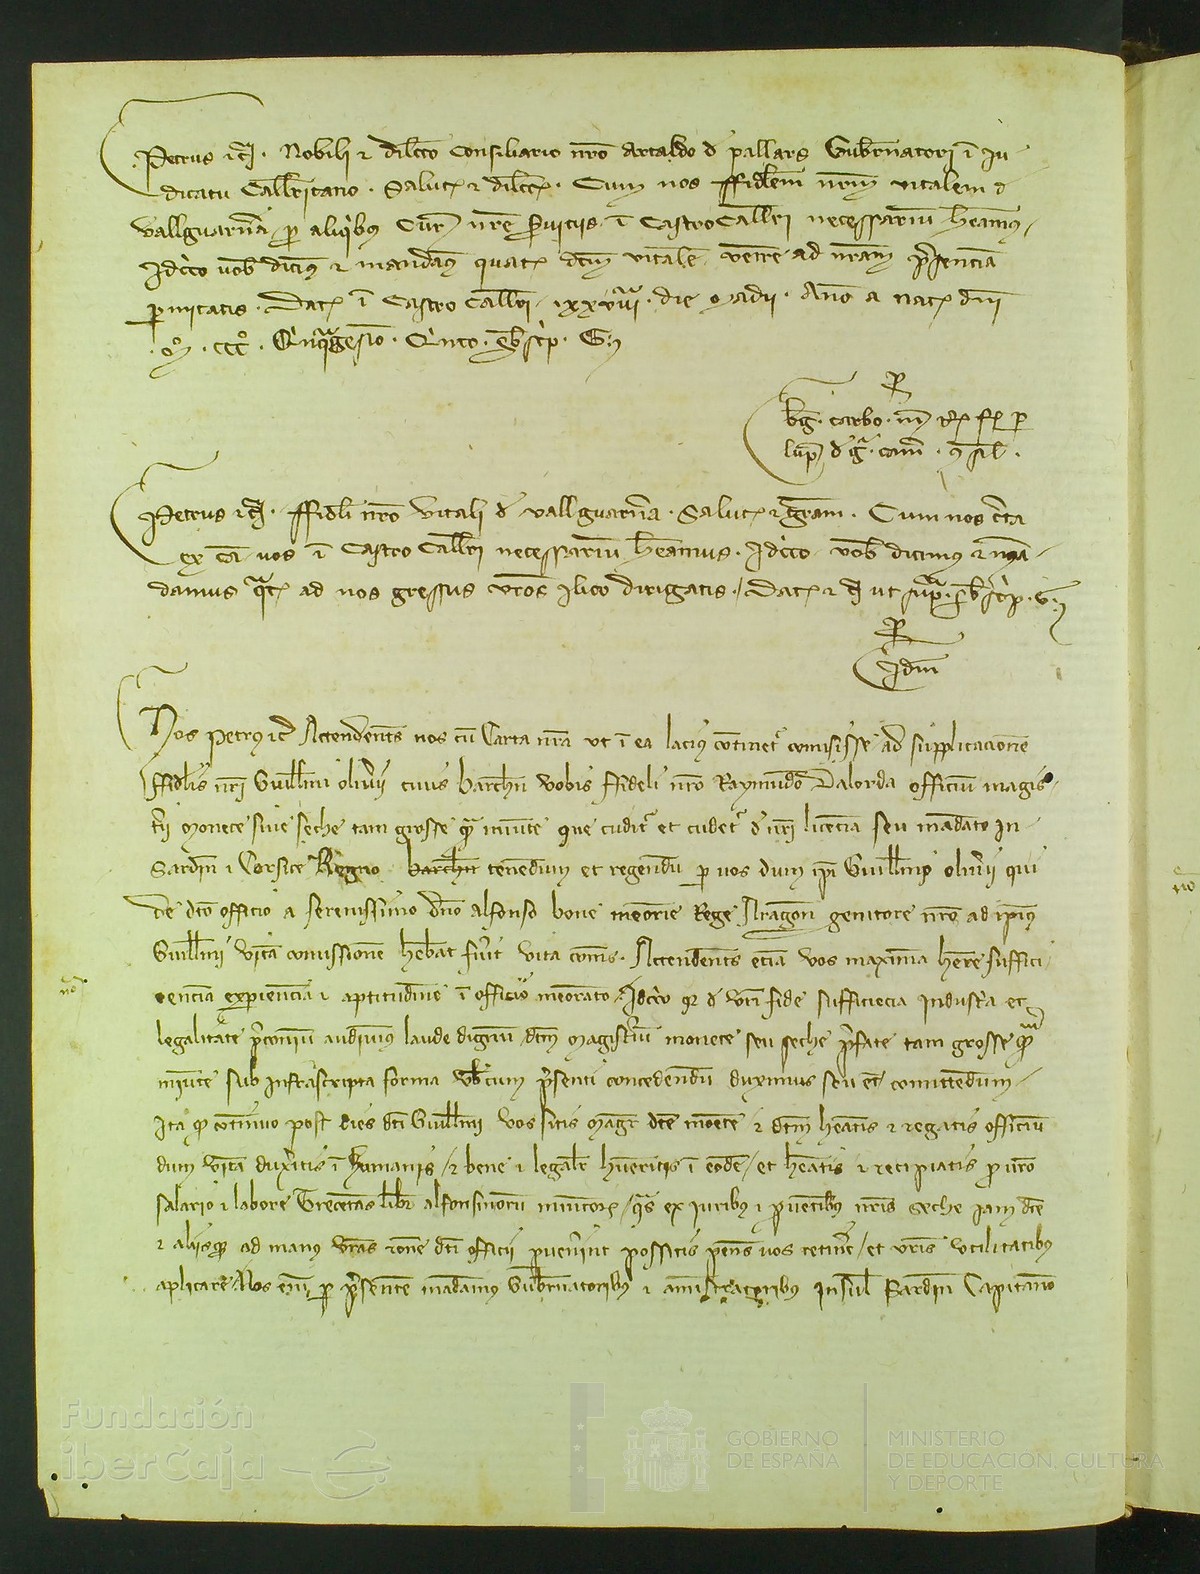 Petrus etc. Nobili et dilcto Consiliario nro Artaldo d pallars Gubrnatori i Iu-
dicatu Callritano. Salutem et dilccem. Cum nos ffidlem nrm vitalem d
vallguarna p aliqibus Curie nre Sviciis i Castro Callri necessarium heamus,
Idcco vob dicims et mandams quatenus dcm vitale venire ad nram psencia
pmitatis. Dat i Castro Callri xxviiia die Madii. Ano a nat dni
Mo CCCo Qinqagesio Qinto.
bg carbo
Petrus etc. ffidli nro vitali d vallguarna. Salut et gram. Cum nos
ex ca vos i Castro Callri necessarium heamus. Idcco vob dicimus et man-
damus qatenus ad nos gressus vros ilico dirigatis. Dat etc ut supra
Idm
Nos Petrus etc Attendents nos cu Carta nra ut i ea lacius continetr comisisse ad supplicacione
ffidlis nri Guillmi oliverii civis barchn vobis ffideli nro Raymundo Dalorda officiu magis-
trii Monete sive seche tam grosse qm minute que cuditr et cudetr d nri licencia seu mandato in
Sardin et Corsice Regno barchn tenendum et regendu p vos dum ipi Guillms oliverii qui
de dco officio a serenissimo dno alfonso bone memorie Rege Aragon genitore nro ad ipius
Guillmi vita comissione hebat fuerit vita coms. Attendents ecia vos maxima here suffici-
enciā experiencia et aptitudine i officio memorato. Idcco qr d vri fide sufficiecia industria et
legalitate pconium audivimus laude dignu dcm Magistriu monete seu seche pfate tam grosse qm
minute sub infrascripta forma vobcum psenti concedendu duximus seu et comittendum
Ita qd continuo post dies dci Guillmi vos sitis Magr dce monete et dcm heatis et regatis officiu
dum vita duxitis i humanis et bene et legalr hueritis i eode et heatis et recipiatis p vro
salario et labore Trecentas libr alfonsinoru minutor qas ex iuribus et pventibus nris seche iam dce
et aliisq ad manus vras racone dci officii pvenerint possitis pens vos retine et vris utilitatibus
aplicare Nos eni p psente mandams Gubrnatoribus et amistratoribus insul Sardin Capitaneo